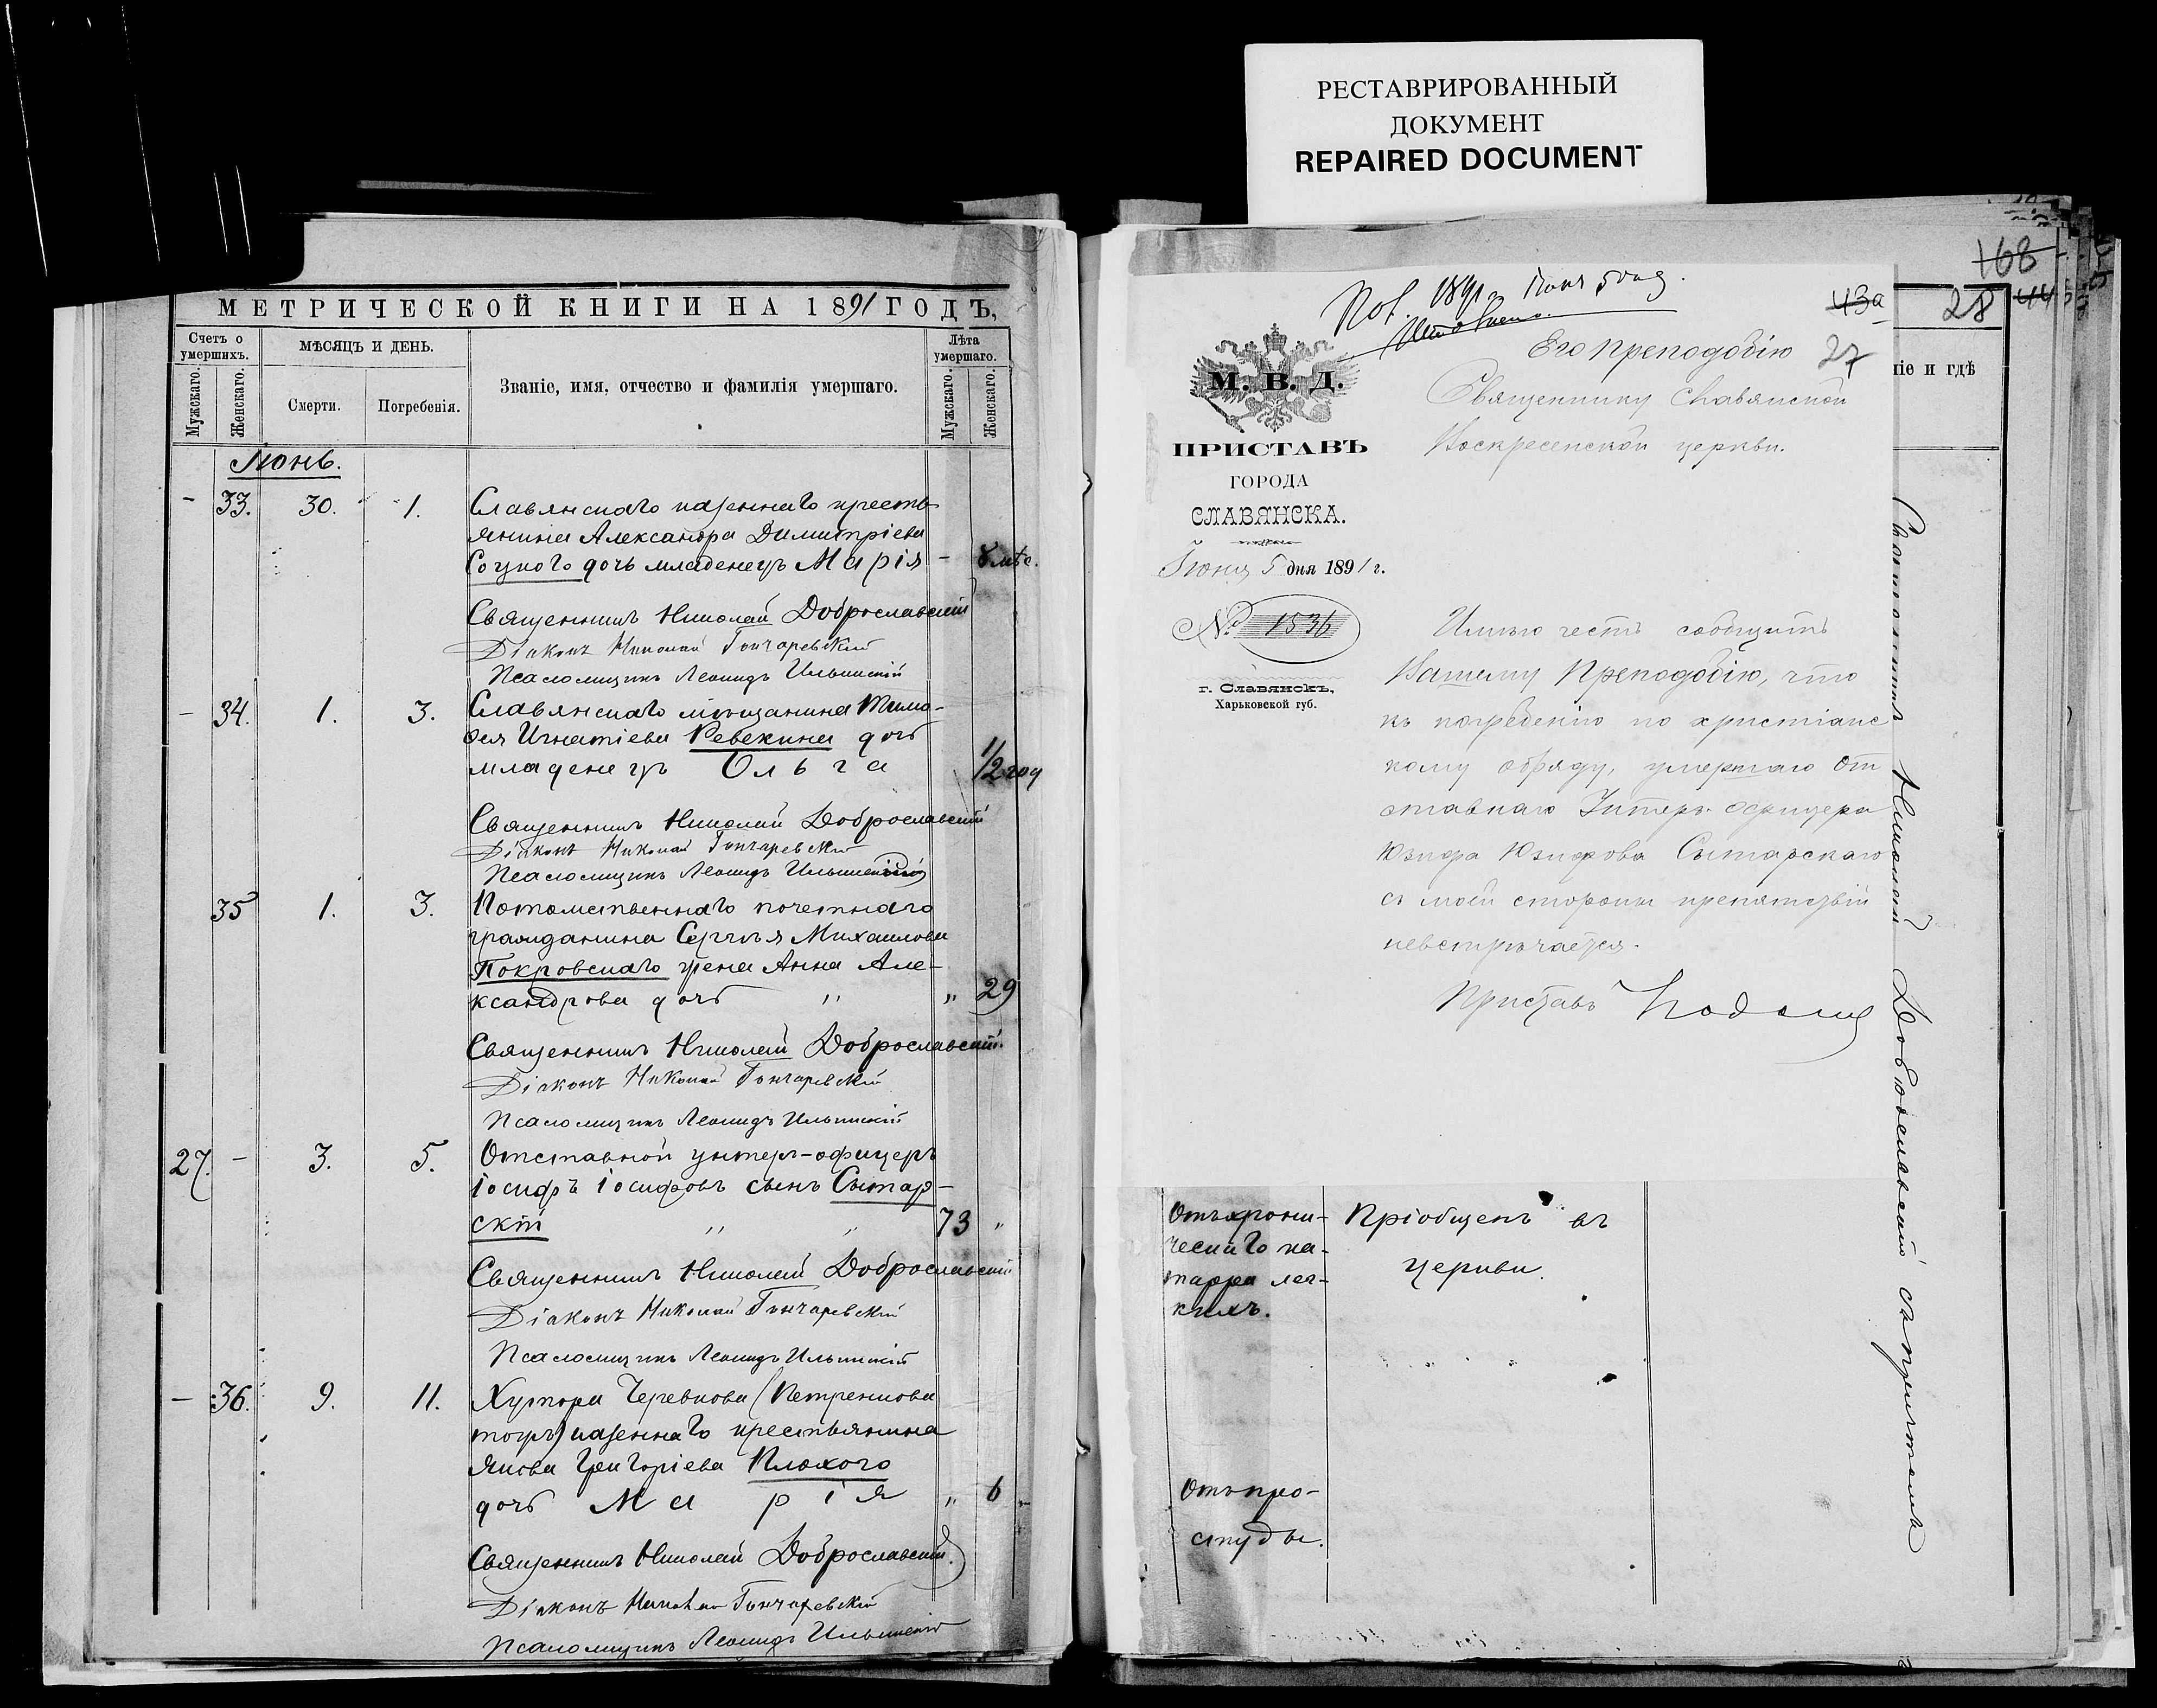 РЕСТАВРИРОВАННЫЙ
ДОКУМЕНТ
REPAIRED DOCUMENT
МЕТРИЧЕСКОЙ КНИГИ НА 1891 ГОДЪ,
Счетъ о умершихъ.
МѢСЯЦЪ И ДЕНЬ.
Званіе, имя, отчество и фамилія умершаго.
Лѣта умершаго.
Мужскаго.
Женскаго.
Смерти.
Погребенія.
Мужскаго.
Женскаго.
Іюнь.
- 33. 30. 1. Славянскаго казеннаго кресть-
янина Александра Димитріева
Соцкого дочь младенецъ Марія - 8 мѣс.
Священникъ Николай Доброславскій
Діаконъ Николай Гончаревскій
Псаломщикъ Леонидъ Ильинскій
- 34. 1. 3. Славянскаго мѣщанина Тимо-
фея Игнатіева Ревекина дочь
младенецъ Ольга 1/2 год
Священникъ Николай Доброславскій
Діаконъ Николай Гончаревскій
Псаломщикъ Леонидъ Ильинскій
35 1. 3. Потомственнаго почетнаго
гражданина Сергѣя Михаилова
Покровскаго жена Анна Але-
ксандрова дочь " " 29
Священникъ Николай Доброславскій
Діаконъ Николай Гончаревскій
Псаломщикъ Леонидъ Ильинскій
27. - 3. 5. Отставной унтеръ-офицеръ
Іосифъ Іосифовъ сынъ Сытар-
скій " " 73 "
Священникъ Николай Доброславскій
Діаконъ Николай Гончаревскій
Псаломщикъ Леонидъ Ильинскій
- 36. 9. 11. Хутора Черевкова (Петренкова
тожъ) казеннаго крестьянина
Якова Григоріева Плохого
дочь Марія " 6
Священникъ Николай Доброславскій
Діаконъ Николай Гончаревскій
Псаломщикъ Леонидъ Ильинскій
168
43а
28 44
Пол. 1891 г. Іюня 5 дня.
27
ніе и гдѣ
М. В. Д.
ПРИСТАВЪ
ГОРОДА
СЛАВЯНСКА.
Іюня 5 дня 1891 г.
№ 1536
г. Славянскъ,
Харьковской губ.
Его Преподобію
Священнику Славянской
Воскресенской церкви.
Имѣю честь сообщить
Вашему Преподобію, что
къ погребенію по христіанс
кому обряду, умершаго От
ставнаго Унтеръ-офицера
Юзифа Юзифова Сытарскаго
съ моей стороны препятствій
невстрѣчается.
Приставъ
Отъ хрони-
ческаго ка-
тарра лег-
кихъ.
Пріобщенъ въ
церкви.
Отъ про-
студы.
Священникъ Николай Доброславскій